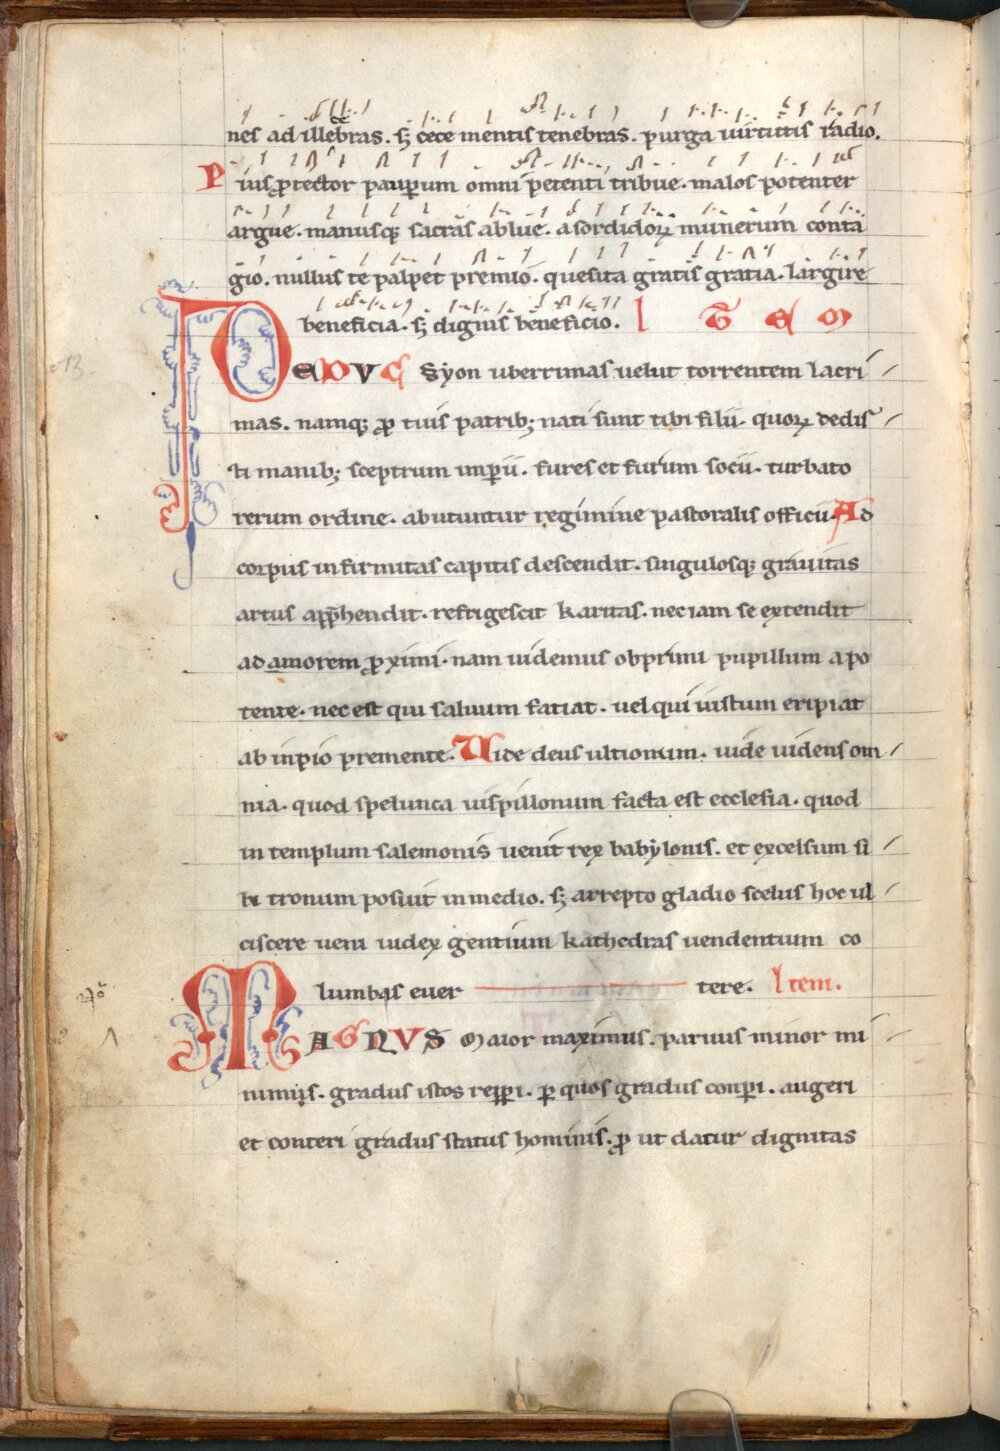 nes ad illebras. sꝫ cece mentis tenebras. purga uirtutis radio.
Pius ꝓtector paupᵉum omni petenti tribue. malos potenter
argue. manusqꝫ sacras ablue. a sordidoꝝ munerum conta
gio. nullus te palpet premio. quesita gratis gratia. largire
beneficia. sꝫ dignis beneficio. ITEM
DeDVC Syon uberrimas uelut torrentem lacri
mas. namqꝫ ꝓ tuis patribꝫ nati sunt tibi filii. quoꝝ dedis
ti manibꝫ sceptrum imꝑii. fures et furum socii. turbato
rerum ordine. abutuntur regimine pastoralis officii. Ad
corpus infirmitas capitis descendit. singulosqꝫ grauitas
artus app̄hendit. refrigescit karitas. nec iam se extendit
ad amorem ꝓximi. nam uidemus obprimi pupillum a po
tente. nec est qui saluum fatiat. uel qui iustum eripiat
ab inpio premente. Uide deus ultionum. uide uidens om
nia. quod spelunca uispillonum facta est ecclesia. quod
in templum salemonis uenit rex babylonis. et excelsum si
bi tronum posuit in medio. sꝫ arrepto gladio scelus hoc ul
ciscere ueni iudex gentium kathedras uendentium co
lumbas euer tere. Item.
MAGNVS Maior maximus. paruus minor mi
nimus. gradus istos repꝑi. ꝑ quos gradus conꝑi. augeri
et conteri gradus status hominis. ꝓ ut datur dignitas